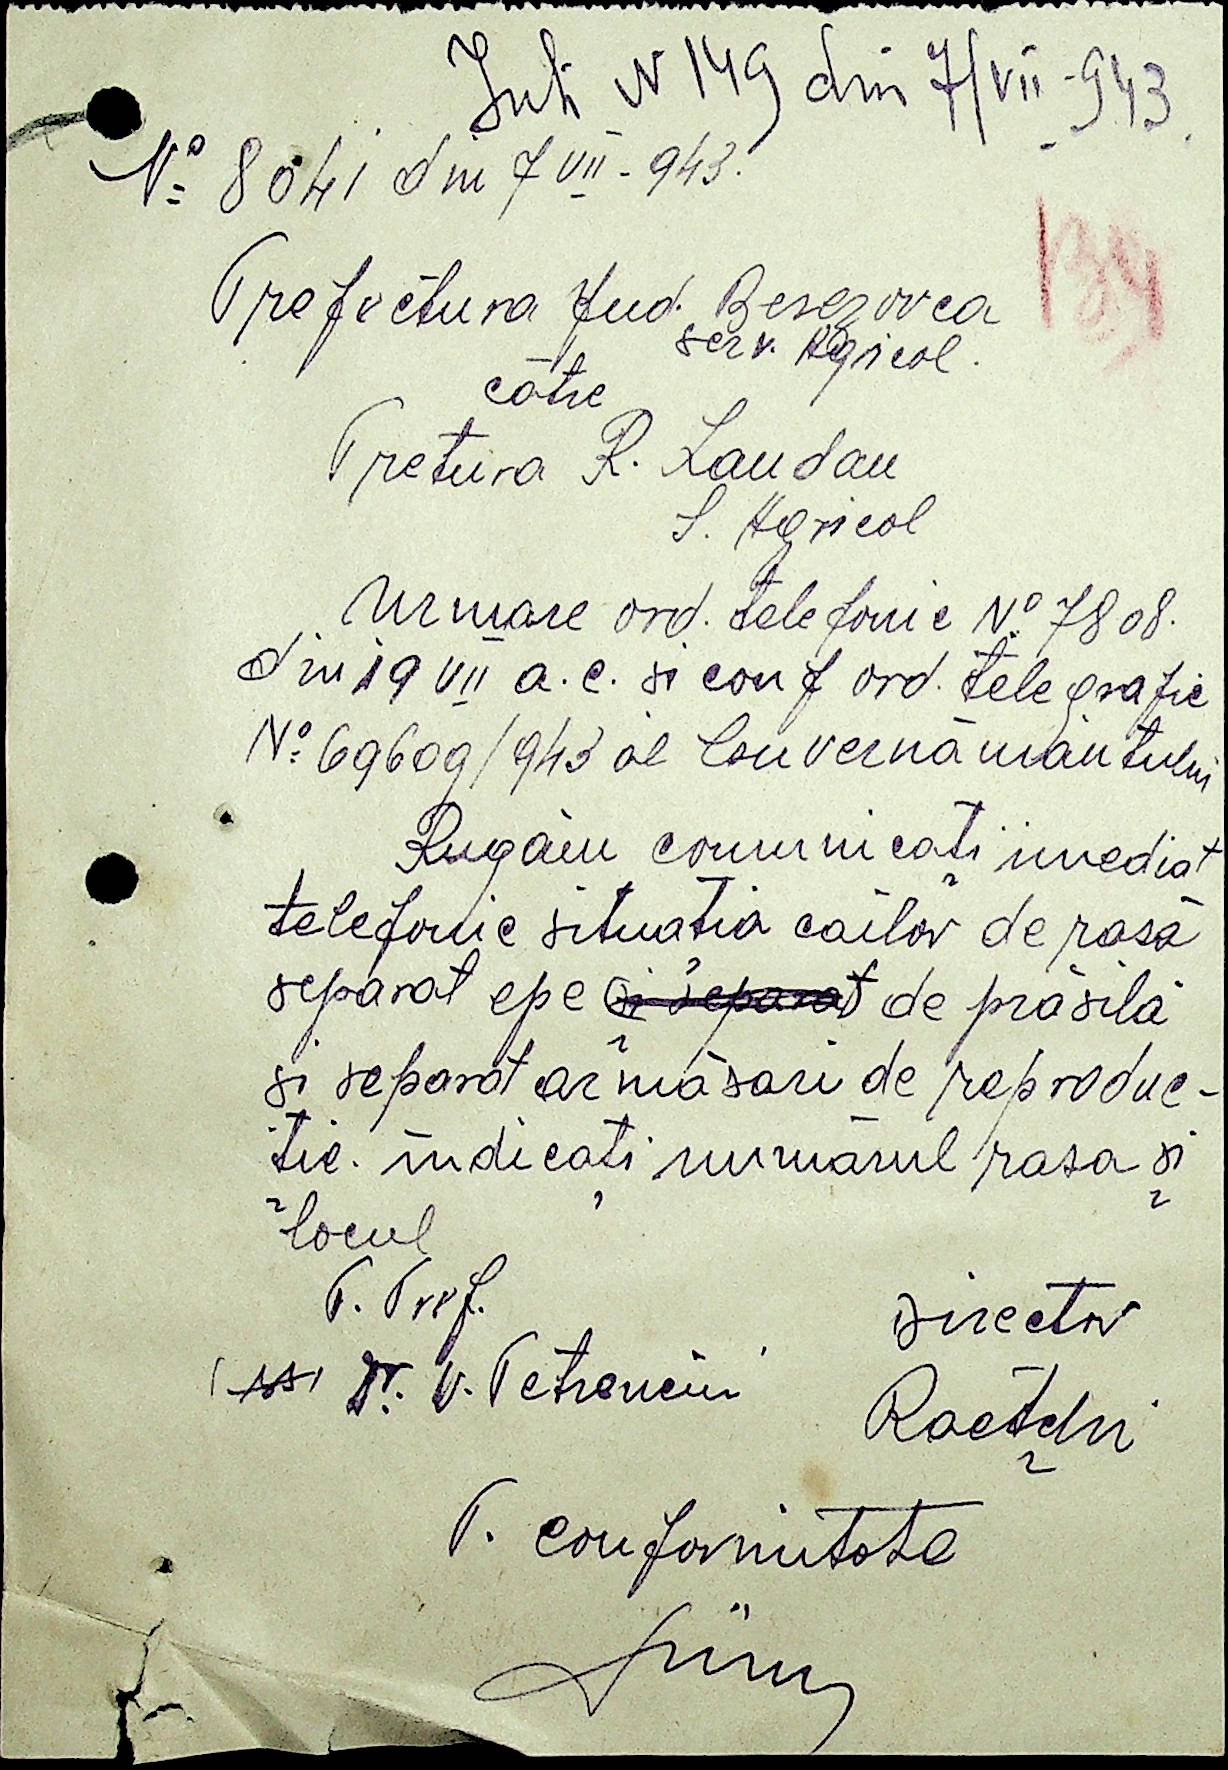 N 149 din 7/VII-943.
Nº 8041 din 7 VII-943.
134
Prefectura Jud. Beresovca
serv. Agricol.
către
Pretura R. Landau
S. Agricol
Urmare ord. telefonic Nº 7808.
din 19 VII a.c. si conf ord. telegrafic
Nº 69609/943 al Guvernământului
Rugăm comunicați imediat
telefonic situatia cailor de rasă
separat epe si separat de prăsilă
și separat armăsari de reproduc-
ție. indicați numărul rasa și
locul
P. Pref. Director
(ss) Dr. V. Petrenciu
P. conformitate